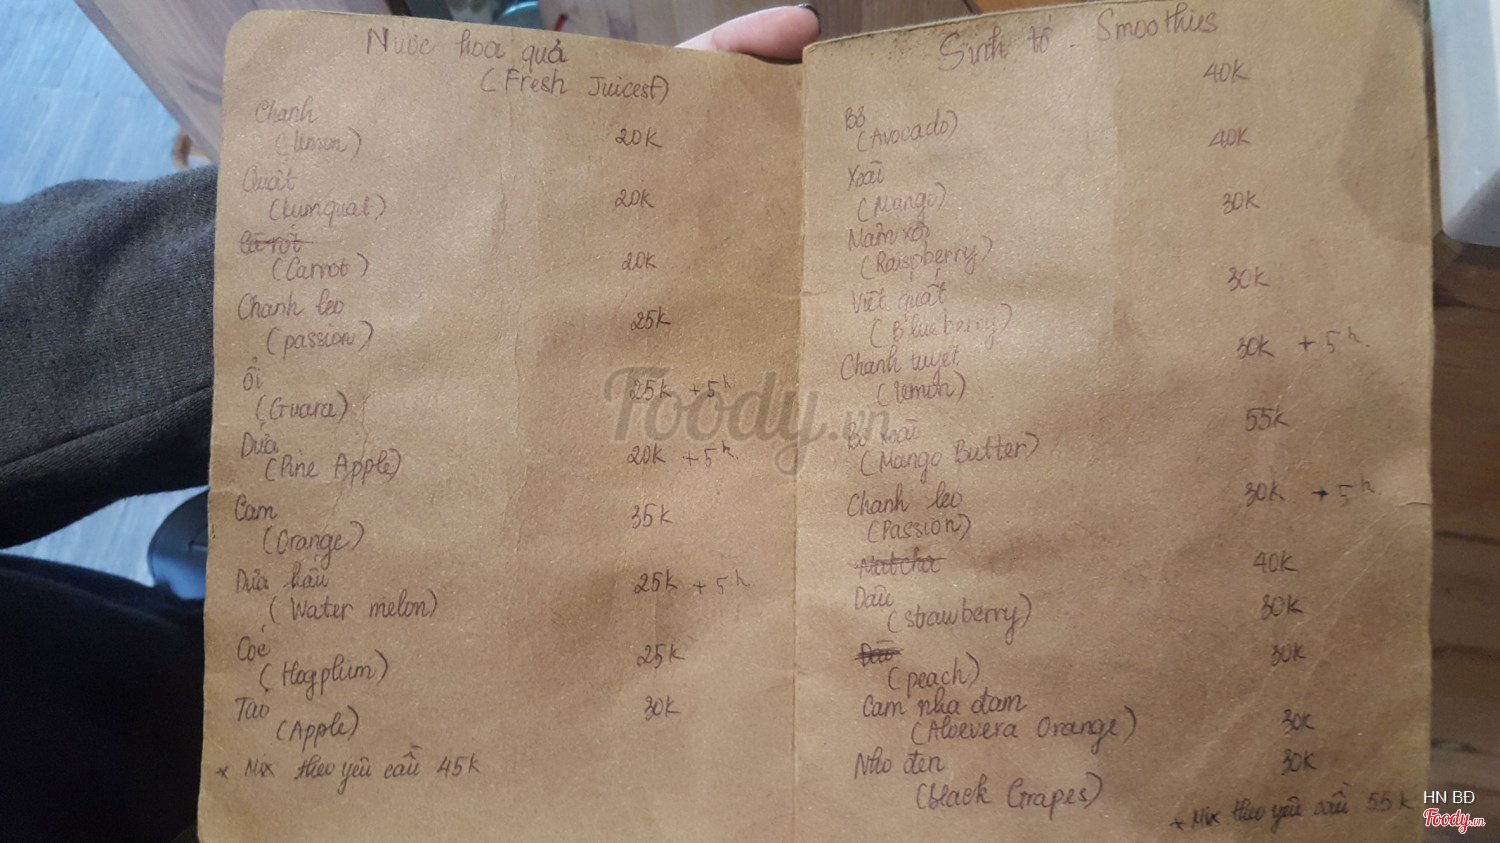 Nước hoa quả
(Fresh Juicest)
Chanh
(lemon) 20K
Quất
(kumquat) 20K
Cà rốt
(Carrot) 20K
Chanh leo
(passion) 25K
Ổi
(Guara) 25K + 5h
Dứa
(Pine Apple) 20K + 5h
Cam
(Orange) 35K
Dưa hấu
(Water melon) 25K + 5h
Cóc
(Hogplum) 25K
Táo
(Apple) 30K
* Mix theo yêu cầu 45K
Sinh tố - Smoothies
40K
Bơ
(Avocado)
40K
Xoài
(Mango)
30K
Mâm xôi
(Raispberry)
30K
Việt quất
(Blueberry)
30K + 5h.
Chanh tuyết
(lemon)
55K
Bơ xoài
(Mango Butter)
30K + 5h
Chanh leo
(Passion)
Matcha 40K
Dâu
(strawberry) 30K
30K
(peach)
Cam nha đam
(Aloevera Orange) 30K
Nho đen 30K
(black Grapes)
* Mix theo yêu cầu 55K
Foody.vn
HN BĐ
Foody.vn